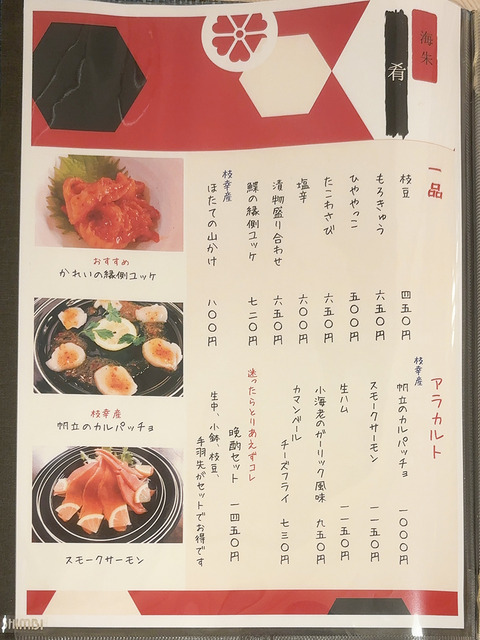 海朱
肴
一品
枝豆 四五〇円
もろきゅう 六五〇円
ひややっこ 五〇〇円
たこわさび 六五〇円
塩辛 六〇〇円
漬物盛り合わせ 六五〇円
鰈の縁側ユッケ 七二〇円
枝幸産
ほたての山かけ 八〇〇円
アラカルト
枝幸産
帆立のカルパッチョ 一〇〇〇円
スモークサーモン 一一五〇円
生ハム 一一五〇円
小海老のガーリック風味 九五〇円
カマンベール
チーズフライ 七三〇円
迷ったらとりあえずコレ
晩酌セット 一四五〇円
生中、小鉢、枝豆、
手羽先がセットでお得です
おすすめ
かれいの縁側ユッケ
枝幸産
帆立のカルパッチョ
スモークサーモン
SHIMBI